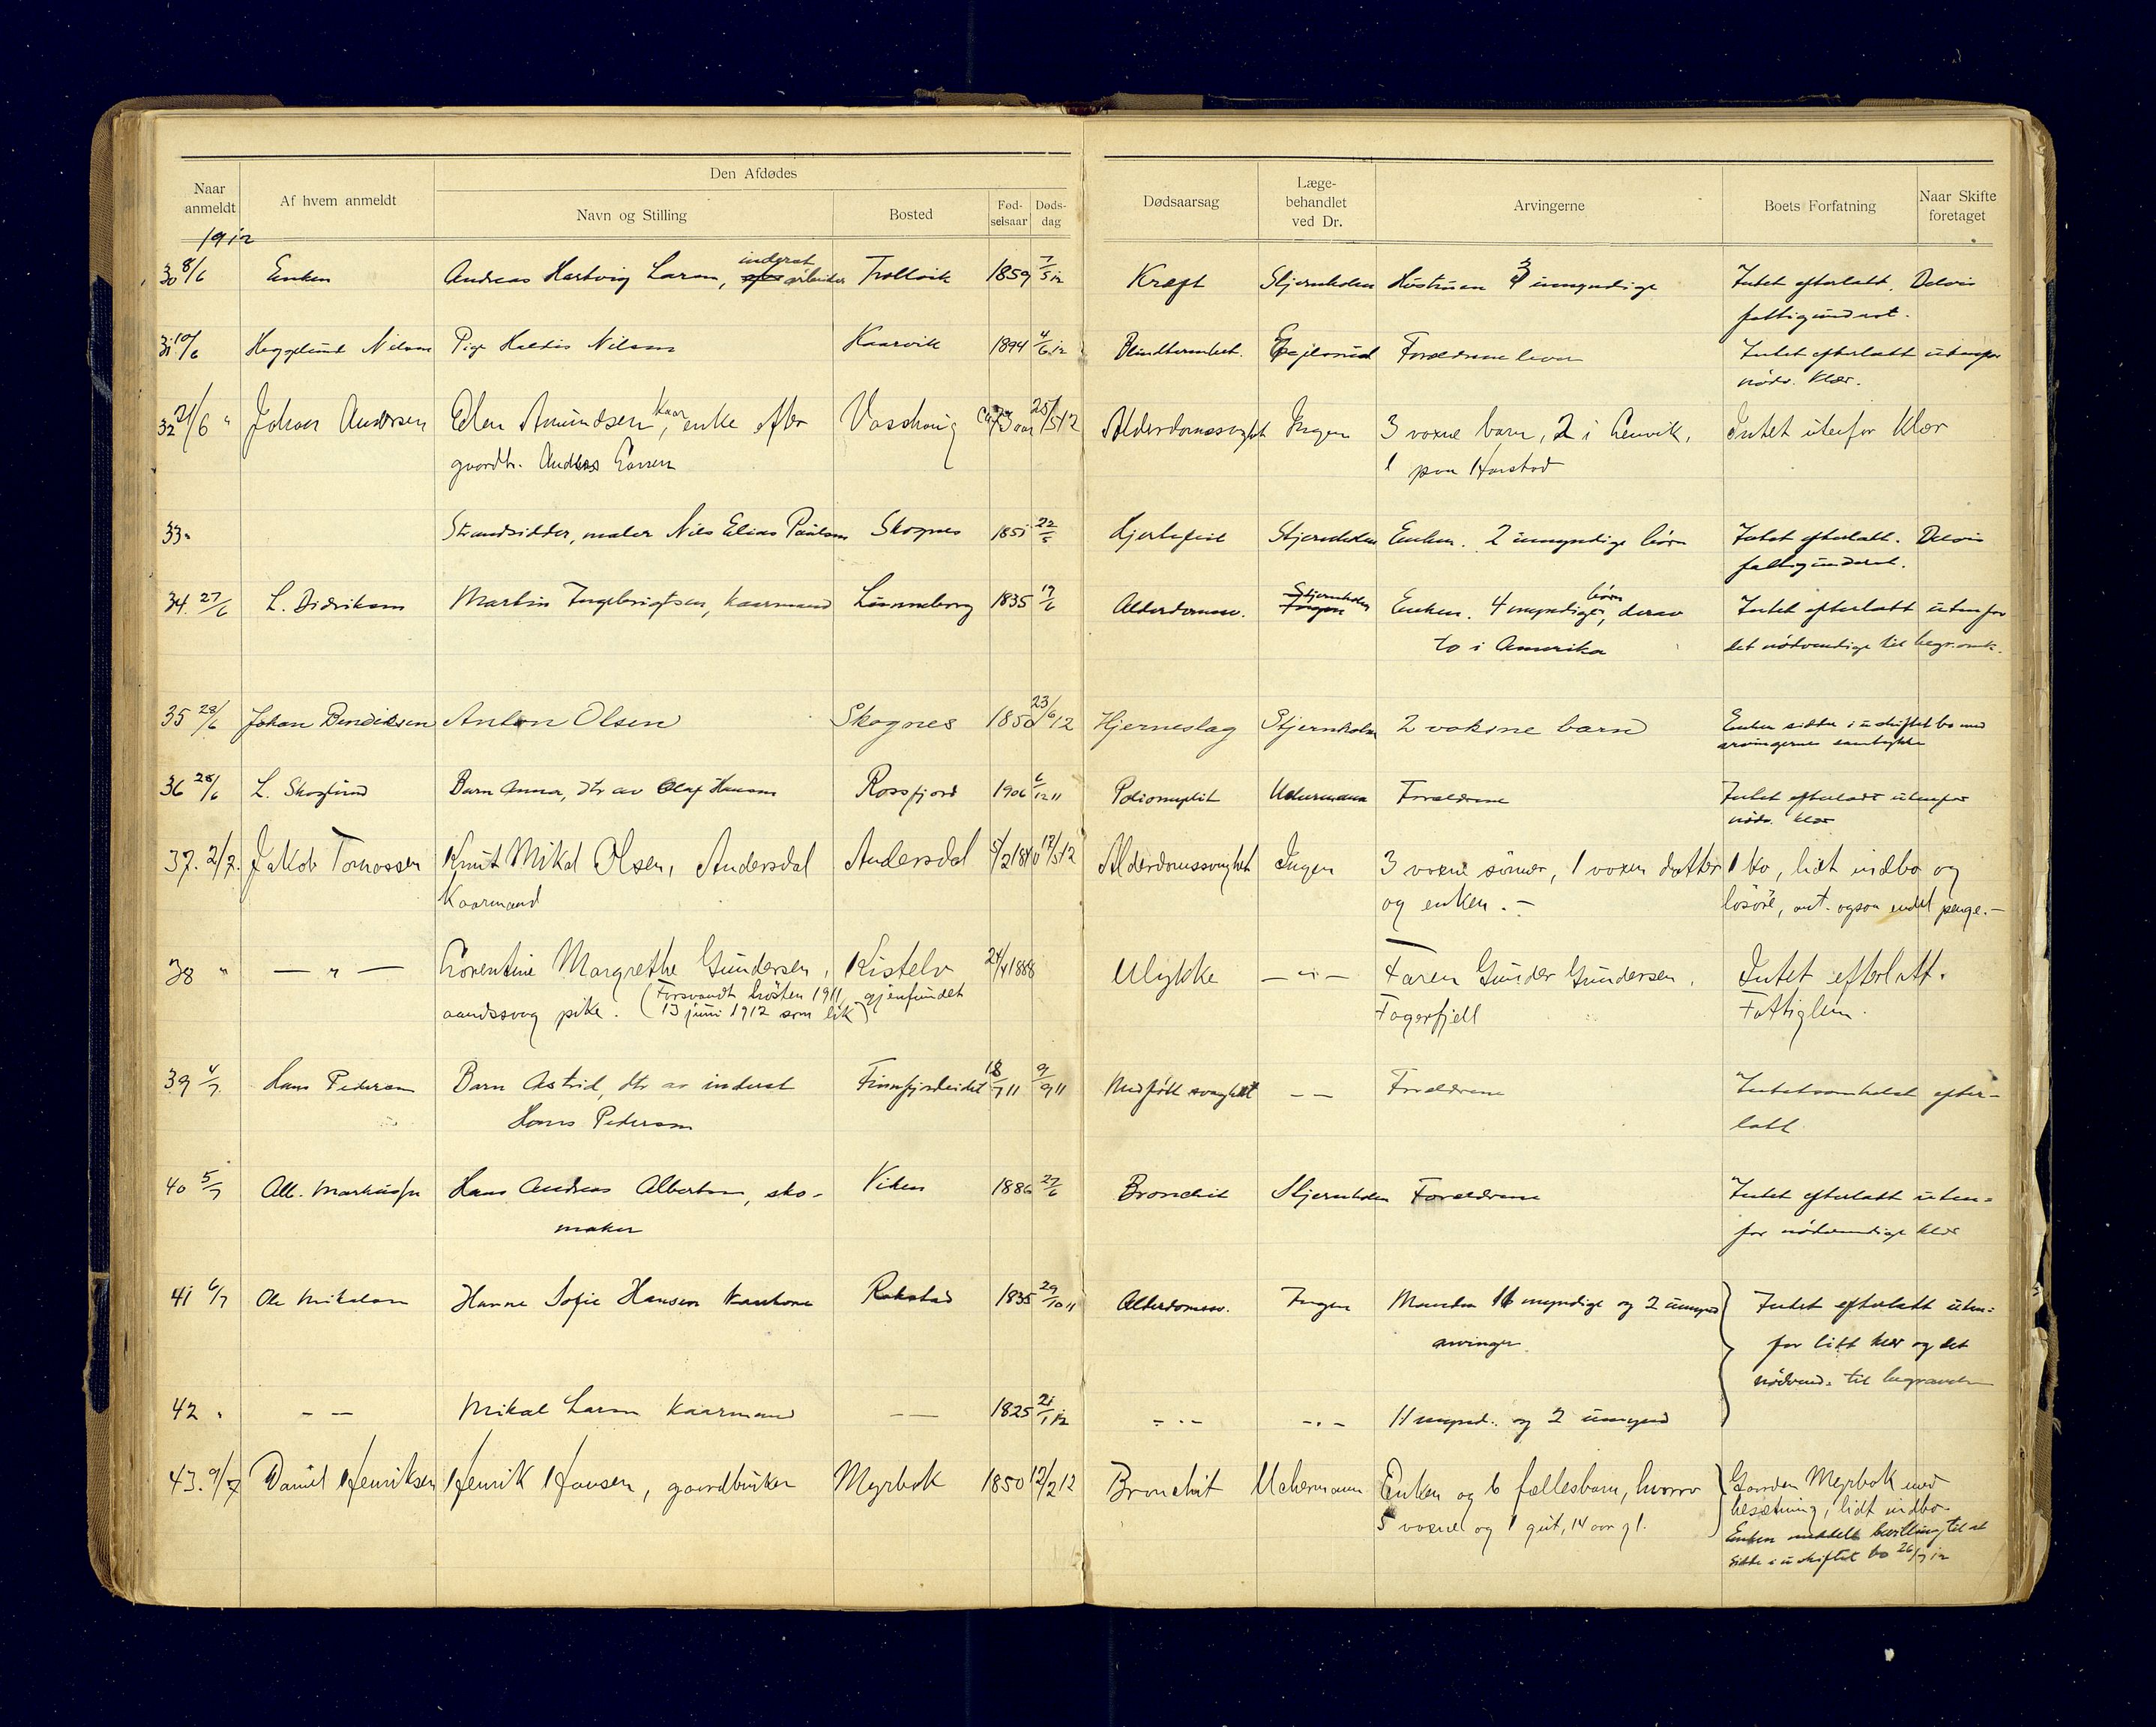 Naar anmeldt
Af hvem anmeldt
Den Afdødes
Navn og Stilling
Bosted
Fød-selsaar
Døds-dag
Dødsaarsag
Læge-behandlet ved Dr.
Arvingerne
Boets Forfatning
Naar Skifte foretaget
1912
30 8/6 Enken Andreas Hartvig Larsen, inderst arbeider Trollvik 1859 7/5 12 Kræft Stjernholm Hustruen 3 umyndige Intet efterlatt. Delvis
fattigunderst.
31 10/6 Hegglund Nilsen Pige Haldis Nilsen Kaarvik 1894 4/6 12 Blindtarmbet. Forældrene lever Intet efterlatt utenfor
nødv. klær.
32 21/6 " Johan Andersen Elen Amundsen, kaar enke efter ca 73 aar 25/5 12 Alderdomssvaghet Ingen 3 voxne barn, 2 i Lenvik, Intet utenfor klær
gaardbr. Andreas 1 paa Harstad
33 " Strandsidder, maler Nils Elias Paulsen Skognes 1851 22/5 Hjertefeil Stjernholm Enken. 2 umyndige børn Intet efterlatt. Delvis
fattigunderst.
34. 27/6 L. Didriksen Martin Ingebrigtsen, kaarmand Lunneborg 1835 17/6 Alderdomssv. Stjernholm Enken. 4 myndige børn, derav Intet efterlatt utenfor
to i Amerika det nødvendige til begr.omk.
35 28/6 Johan Bendiksen Anton Olsen Skognes 1850 23/6 12 Hjerneslag Stjernholm 2 voksne barn Enken sidder i uskiftet bo med
arvingernes samtykke
36 28/6 L. Skoglund Barn Anna, dtr av Olaf Hansen Rossfjord 1906 6/12 11 Poliomyelit Uchermann Forældrene Intet efterladt utenfor
nødv. klær
37. 2/7. Jakob Tomassen Knut Mikal Olsen, Andersdal Andersdal 5/2 1840 17/5 12 Alderdomssvaghet Ingen 3 voxne sönner, 1 voxen datter 1 ko, lidt indbo og
Kaarmand og enken. – lösöre, ant. ogsaa endel penge. –
38 " — " — Lorentine Margrethe Gundersen, Kistelv 24/4 1888 Ulykke — " — Faren Gunder Gundersen, Intet efterlatt.
aandssvag pike. (Forsvandt hösten 1911, gjenfundet Fagerfjell Fattiglem.
13 juni 1912 som lik)
39 4/7 Hans Pedersen Barn Astrid, dtr av inderst Finnfjordeidet 18/7 11 9/9 11 Medfödt svaghet — — Forældrene Intetsomhelst efter-
Hans Pedersen latt
40 5/7 Alb. Markussen Hans Andreas Albertsen, sko- Viken 1886 27/6 Bronchit Stjernholm Forældrene Intet efterlatt uten-
maker for nødvendige klær
41 6/7 Ole Mikalsen Hanne Sofie Hansen kaarkone Rakstad 1835 29/10 11 Alderdomssv. Ingen Manden 11 myndige og 2 umynd Intet efterlatt uten-
arvinger for litt klær og det
nødvend. til begravelsen
42 " — — Mikal Larsen Kaarmand — — 1825 21/1 12 — " — — " — 11 mynd. og 2 umynd
43. 9/7 Daniel Henriksen Henrik Hansen, gaardbruker Myrbak 1850 12/2 12 Bronchit Uchermann Enken og 6 fællesbarn, hvorav Gaarden Myrbak med
5 voxne og 1 gut, 14 aar gl. besætning, lidt indbo
Enken meddelt bevilling til at
sidde i uskiftet bo 26/7 12